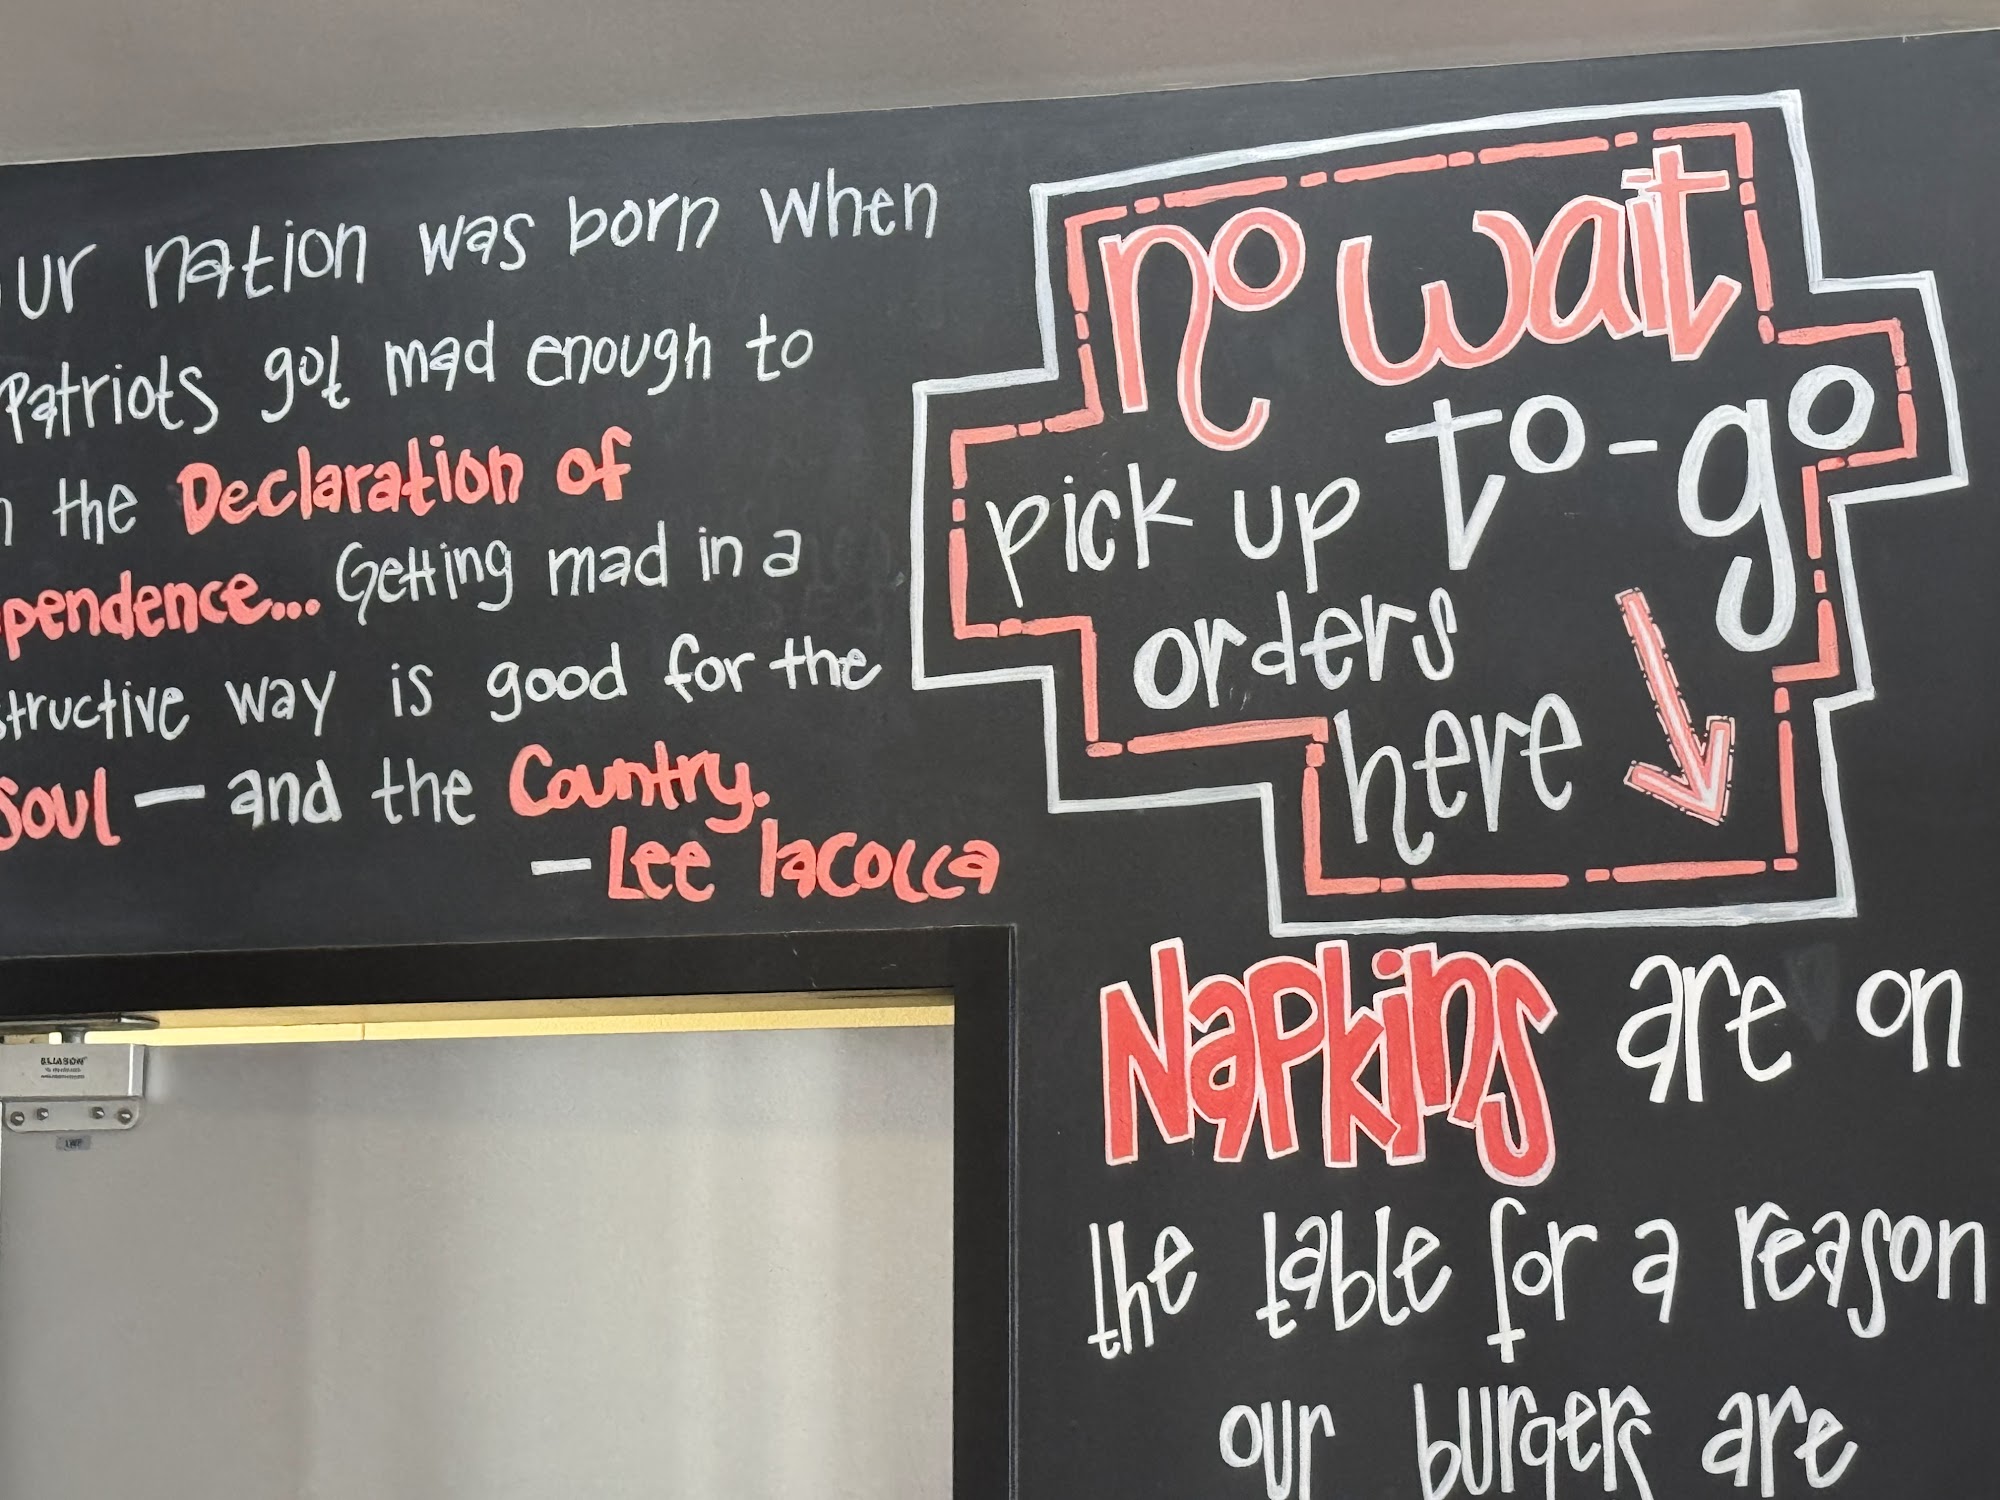 ur nation was born when
Patriots got mad enough to
n the Declaration of
pendence... Getting mad in a
structive way is good for the
Soul — and the Country.
— Lee Iacocca
no wait
pick up to-go
orders
here
Napkins are on
the table for a reason
our burgers are